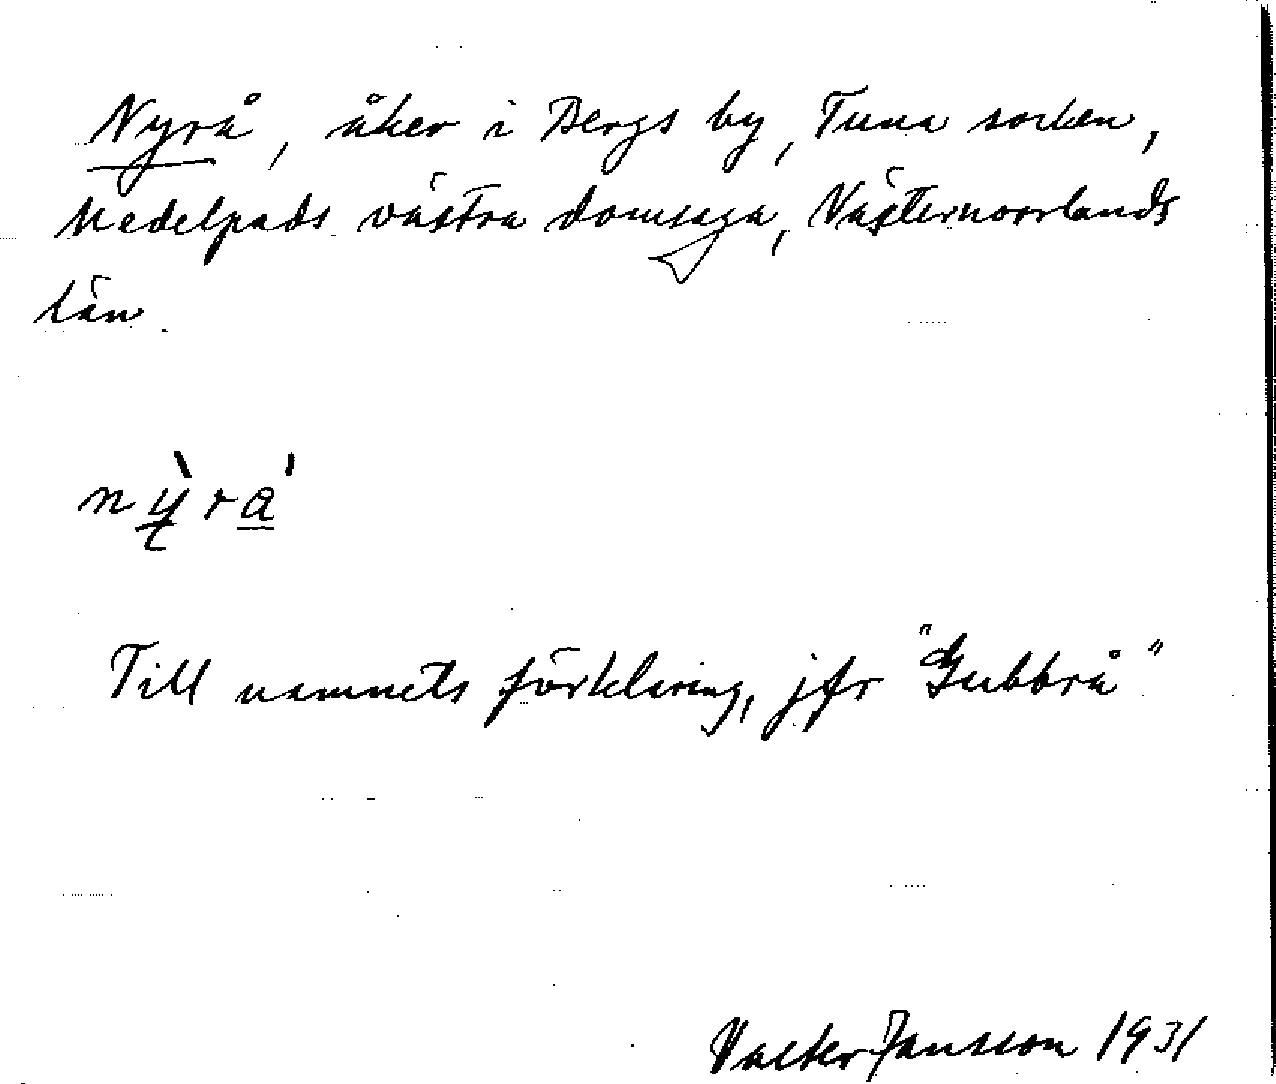 Nyrå, åker i Bergs by, Tuna socken,
Medelpads västra domsaga, Västernorrlands
län.
nỳra̍
Till namnets förklaring, jfr "Gubbrå"
Valter Jansson 1931